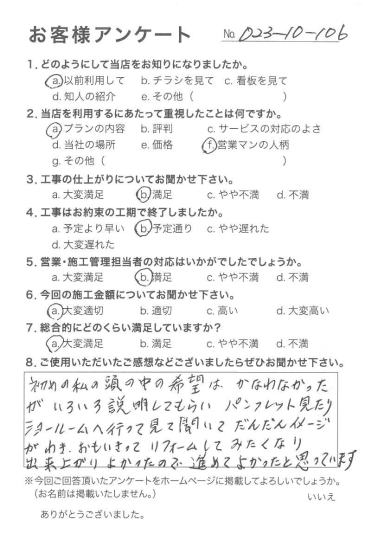 お客様アンケート No. 023-10-106
1. どのようにして当店をお知りになりましたか。
a. 以前利用して b. チラシを見て c. 看板を見て
d. 知人の紹介 e. その他( )
2. 当店を利用するにあたって重視したことは何ですか。
a. プランの内容 b. 評判 c. サービスの対応のよさ
d. 当社の場所 e. 価格 f. 営業マンの人柄
g. その他( )
3. 工事の仕上がりについてお聞かせ下さい。
a. 大変満足 b. 満足 c. やや不満 d. 不満
4. 工事はお約束の工期で終了しましたか。
a. 予定より早い b. 予定通り c. やや遅れた
d. 大変遅れた
5. 営業・施工管理担当者の対応はいかがでしたでしょうか。
a. 大変満足 b. 満足 c. やや不満 d. 不満
6. 今回の施工金額についてお聞かせ下さい。
a. 大変適切 b. 適切 c. 高い d. 大変高い
7. 総合的にどのくらい満足していますか?
a. 大変満足 b. 満足 c. やや不満 d. 不満
8. ご使用いただいたご感想などございましたらぜひお聞かせ下さい。
初めの私の頭の中の希望は かなわなかった
が いろいろ説明してもらい パンフレット見たり
ショールームへ行って見て聞いて だんだんイメージ
がわき、おもいきって リフォームして みたくなり
出来上がり よかったので 進めてよかったと思っています
※今回ご回答頂いたアンケートをホームページに掲載してよろしいでしょうか。
(お名前は掲載いたしません。) いいえ
ありがとうございました。